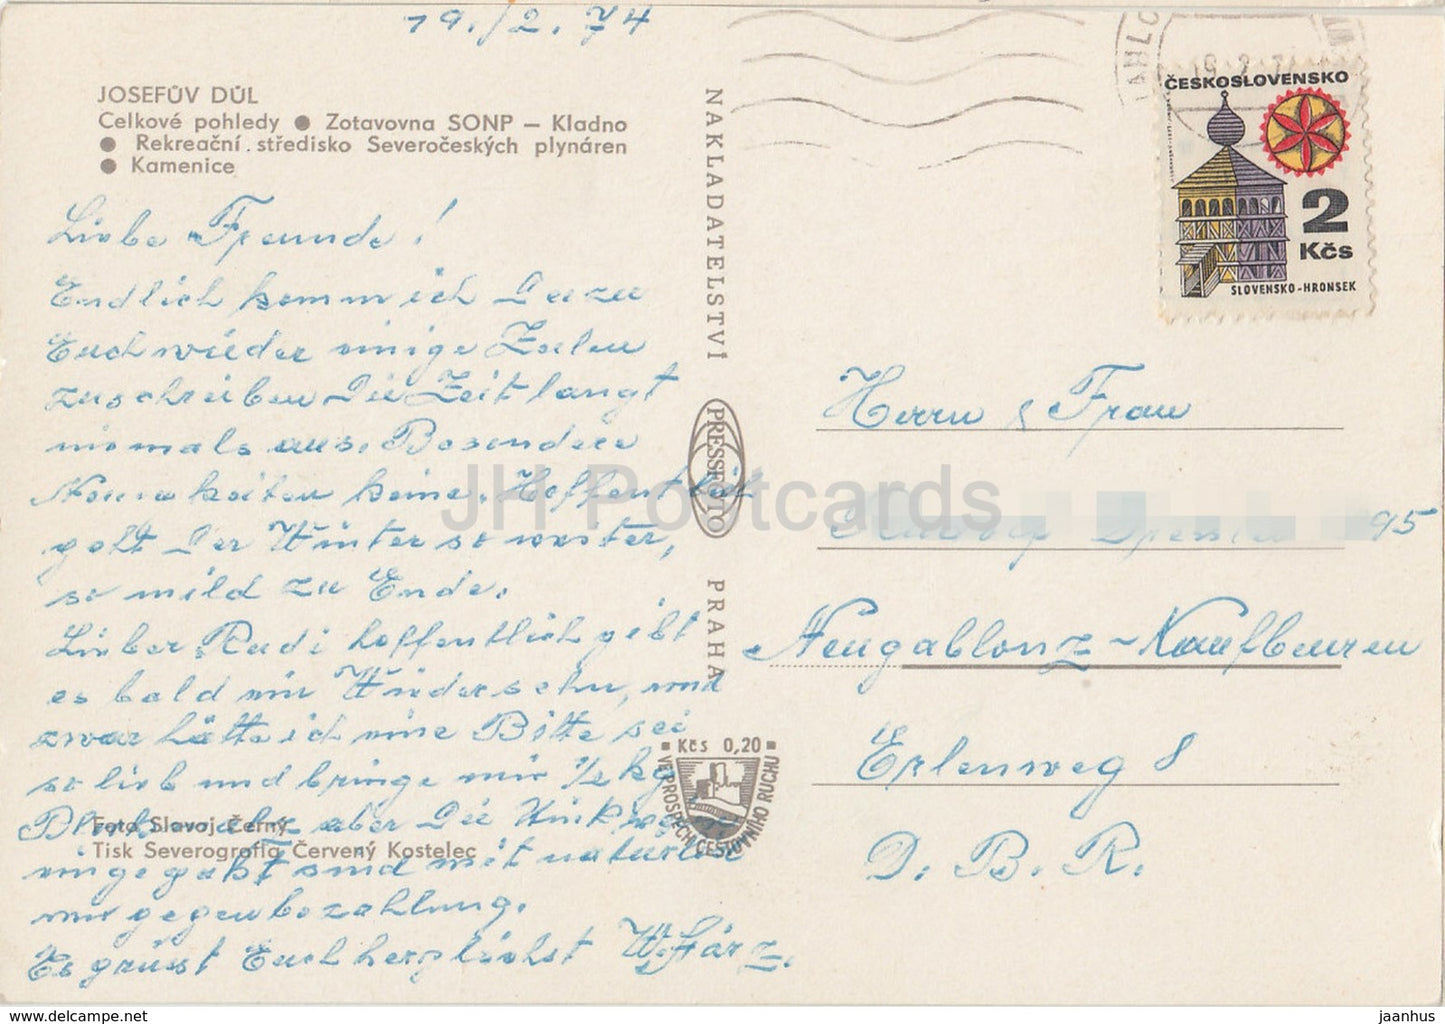 19./2. 74
JOSEFŮV DŮL
Celkové pohledy ● Zotavovna SONP – Kladno
● Rekreační středisko Severočeských plynáren
● Kamenice
Liebe Freunde!
Endlich komm ich Dazu
Euch wieder einige Zeilen
zuschreiben Die Zeit langt
niemals aus. Besondere
keine. Hoffentlich
geht Der Winter so weiter,
so mild zu Ende.
Lieber Rudi hoffentlich gibt
es bald ein Wiedersehn, und
zwar hätte ich eine Bitte sei
so lieb und bringe mir 1/2 kg
aber Die
sind mit
nur gegenbezahlung.
Es grüsst Euch herzlichst
Foto Slavoj Černý
Tisk Severografia Červený Kostelec
NAKLADATELSTVÍ
PRESSFOTO
PRAHA
Kčs 0,20
VE PROSPĚCH CESTOVNÍHO RUCHU
ČESKOSLOVENSKO
2
Kčs
SLOVENSKO-HRONSEK
Herrn & Frau
95
Neugablonz-Kaufbeuren
Erlenweg 8
D. B. R.
JH Postcards
https://www.delcampe.net
jaanhus